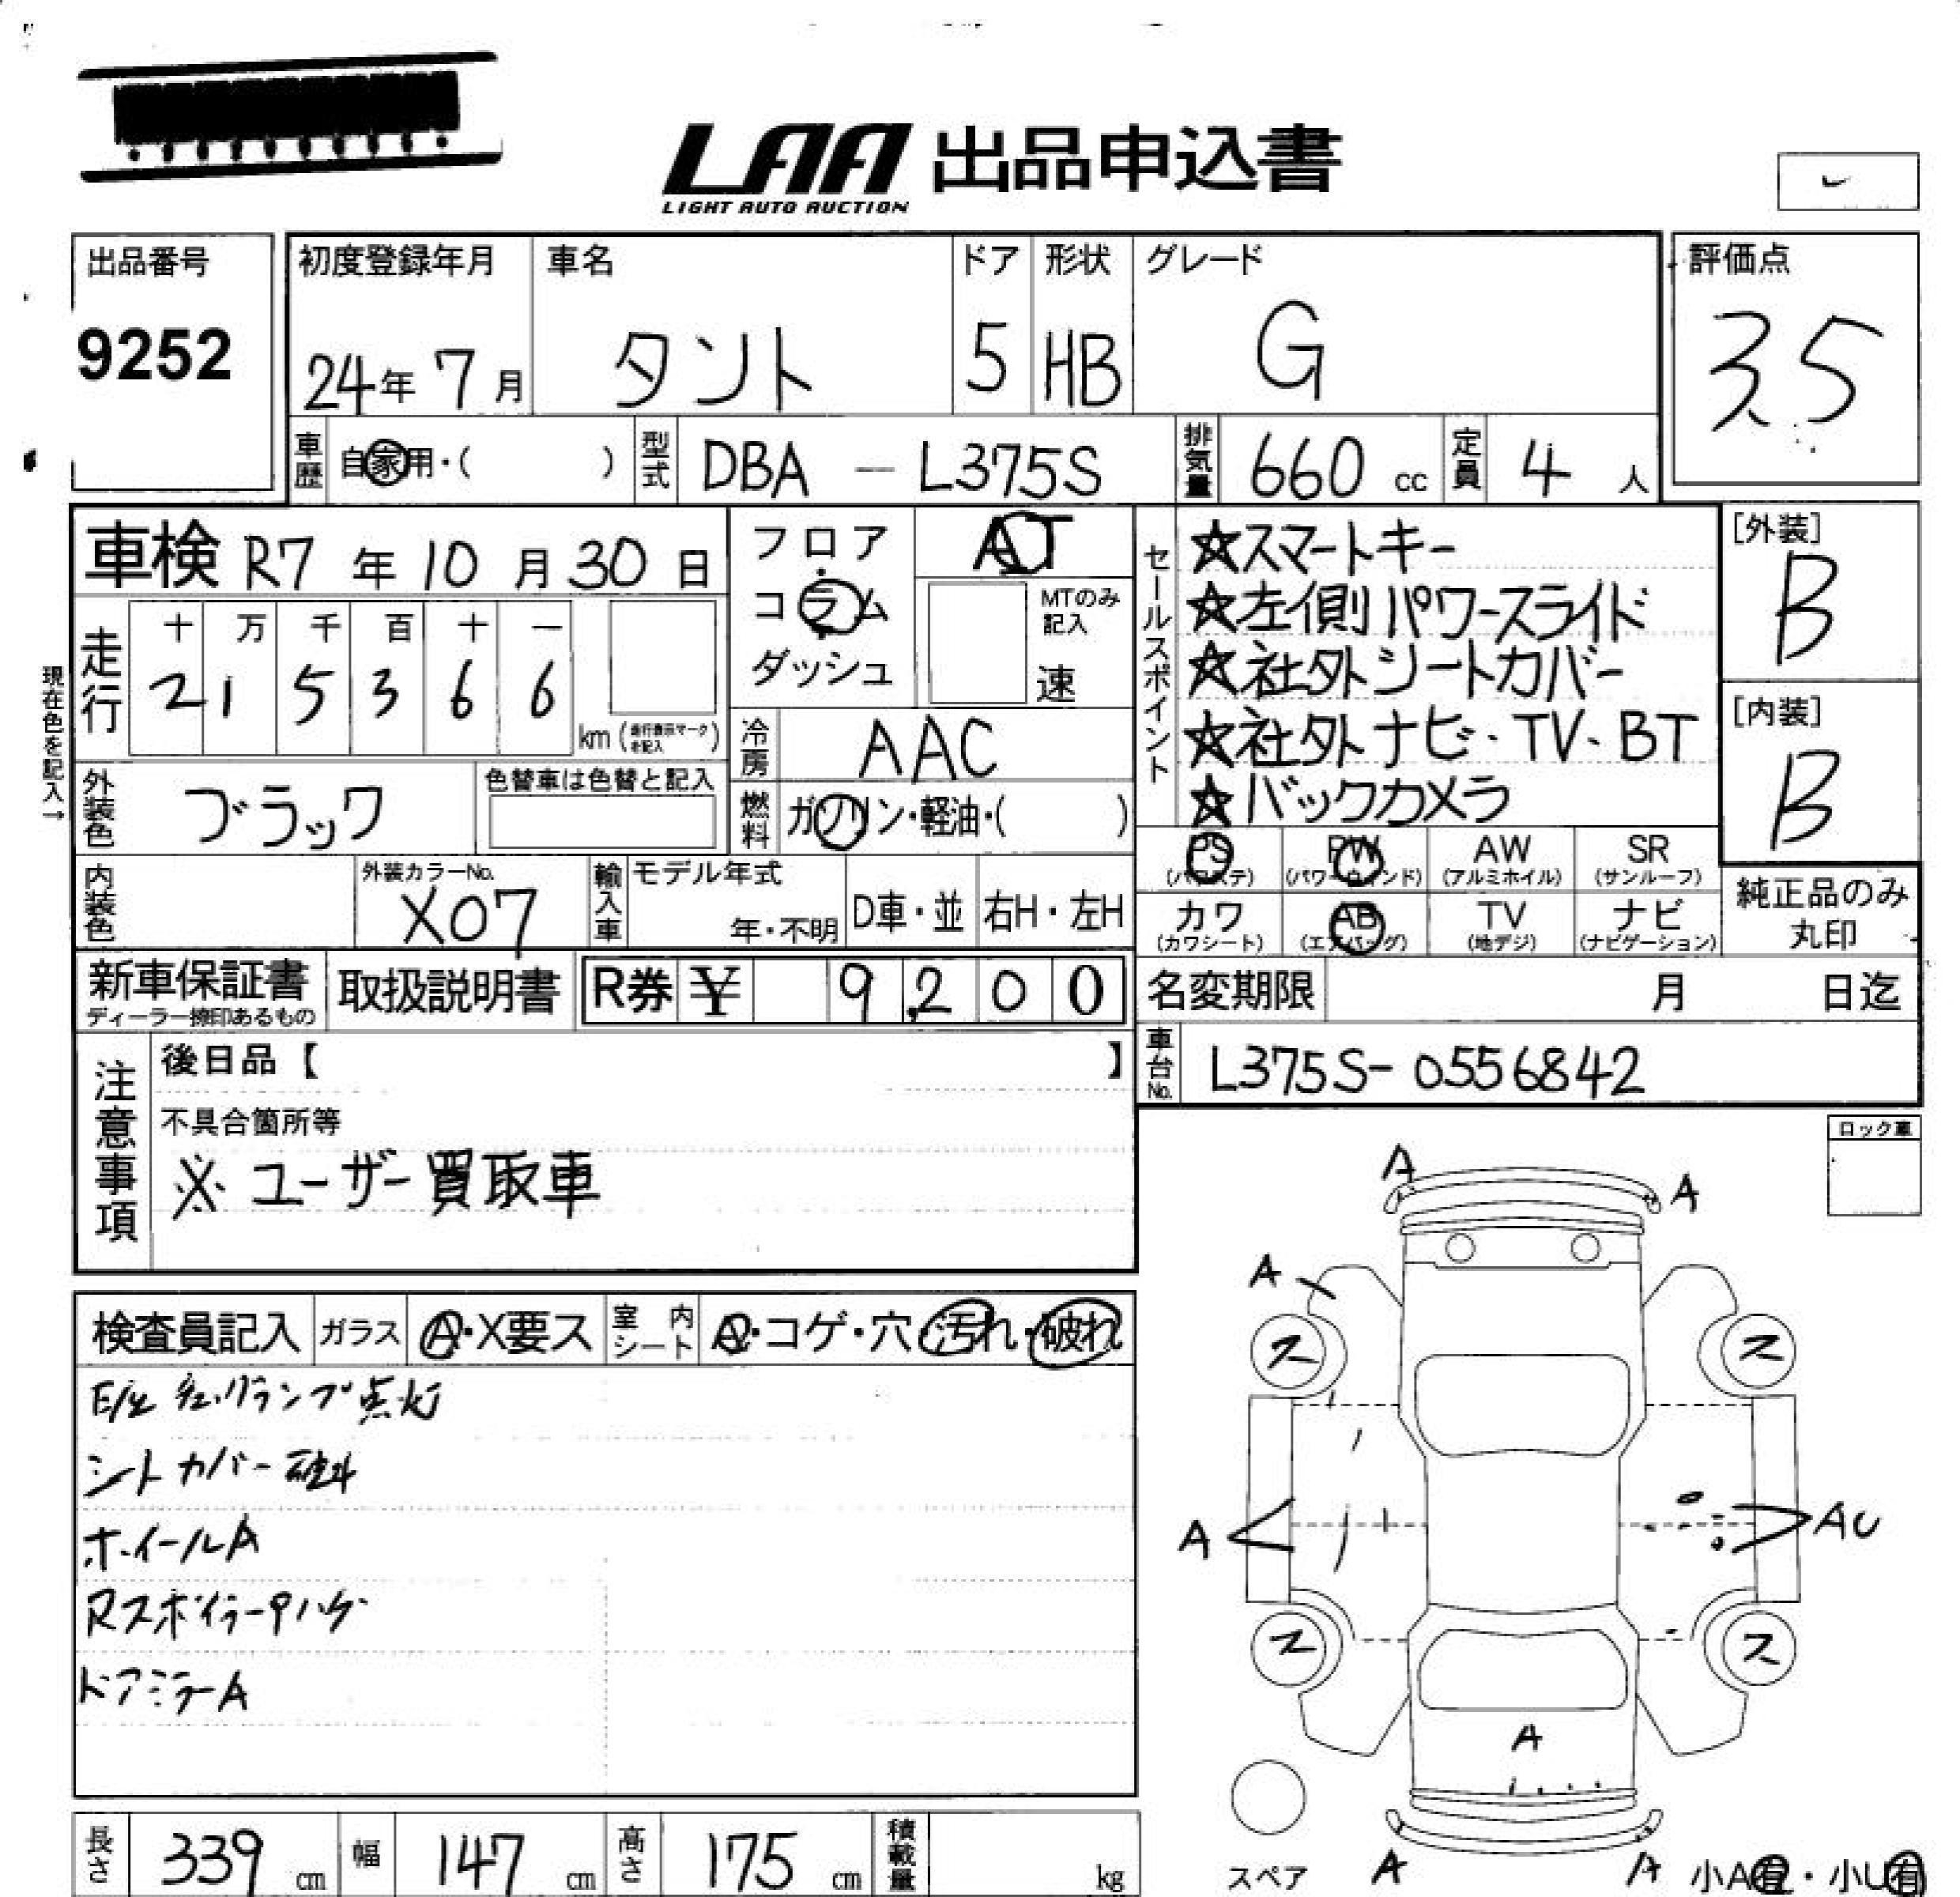 LAA 出品申込書
LIGHT AUTO AUCTION
出品番号
9252
初度登録年月
24年 7月
車名
タント
ドア
5
形状
HB
グレード
G
評価点
3.5
車歴 自家用・( )
型式 DBA - L375S
排気量 660 cc
定員 4 人
車検 R7 年 10 月 30 日
現在色を記入→
走行
十 万 千 百 十 一
2 1 5 3 6 6 km (走行表示マークを記入)
フロア
コラム
ダッシュ
AT
MTのみ記入
速
冷房 AAC
燃料 ガソリン・軽油・( )
外装色 ブラック
色替車は色替と記入
内装色
外装カラーNo.
X07
輸入車
モデル年式
年・不明
D車・並
右H・左H
セールスポイント
☆スマートキー
☆左側パワースライド
☆社外シートカバー
☆社外ナビ・TV・BT
☆バックカメラ
[外装]
B
[内装]
B
PS (パワステ)
PW (パワーウィンド)
AW (アルミホイル)
SR (サンルーフ)
カワ (カワシート)
AB (エアバッグ)
TV (地デジ)
ナビ (ナビゲーション)
純正品のみ
丸印
新車保証書
ディーラー捺印あるもの
取扱説明書
R券 ¥ 9,200
名変期限 月 日迄
車台No. L375S-0556842
注意事項
後日品【 】
不具合箇所等
※ ユーザー買取車
ロック車
検査員記入
ガラス A・X要ス
室内シート ・コゲ・穴・汚れ・破れ
チェックランプ点灯
シートカバー破れ
ホイールA
Rスポイラー
ドアミラーA
A
A
A
ス
ス
A
AU
ス
ス
A
A
A
スペア
小A有・小U有
長さ 339 cm
幅 147 cm
高さ 175 cm
積載量 kg